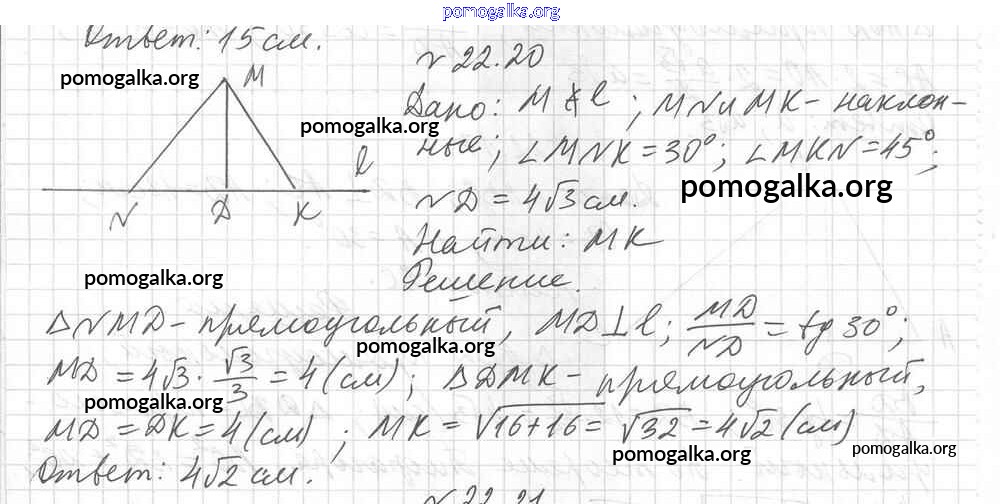 pomogalka.org
Ответ: 15 см.
N 22.20
pomogalka.org
M
Дано: M ∉ l; MN и MK - наклон-
pomogalka.org
ные; ∠MNK = 30°; ∠MKN = 45°;
l
pomogalka.org
ND = 4√3 см.
N D K
Найти: MK
pomogalka.org
Решение.
△NMD - прямоугольный, MD ⊥ l; MD/ND = tg 30°;
pomogalka.org
MD = 4√3 · √3/3 = 4 (см); △DMK - прямоугольный,
pomogalka.org
MD = DK = 4 (см); MK = √16+16 = √32 = 4√2 (см)
pomogalka.org
pomogalka.org
Ответ: 4√2 см.
N 22.21